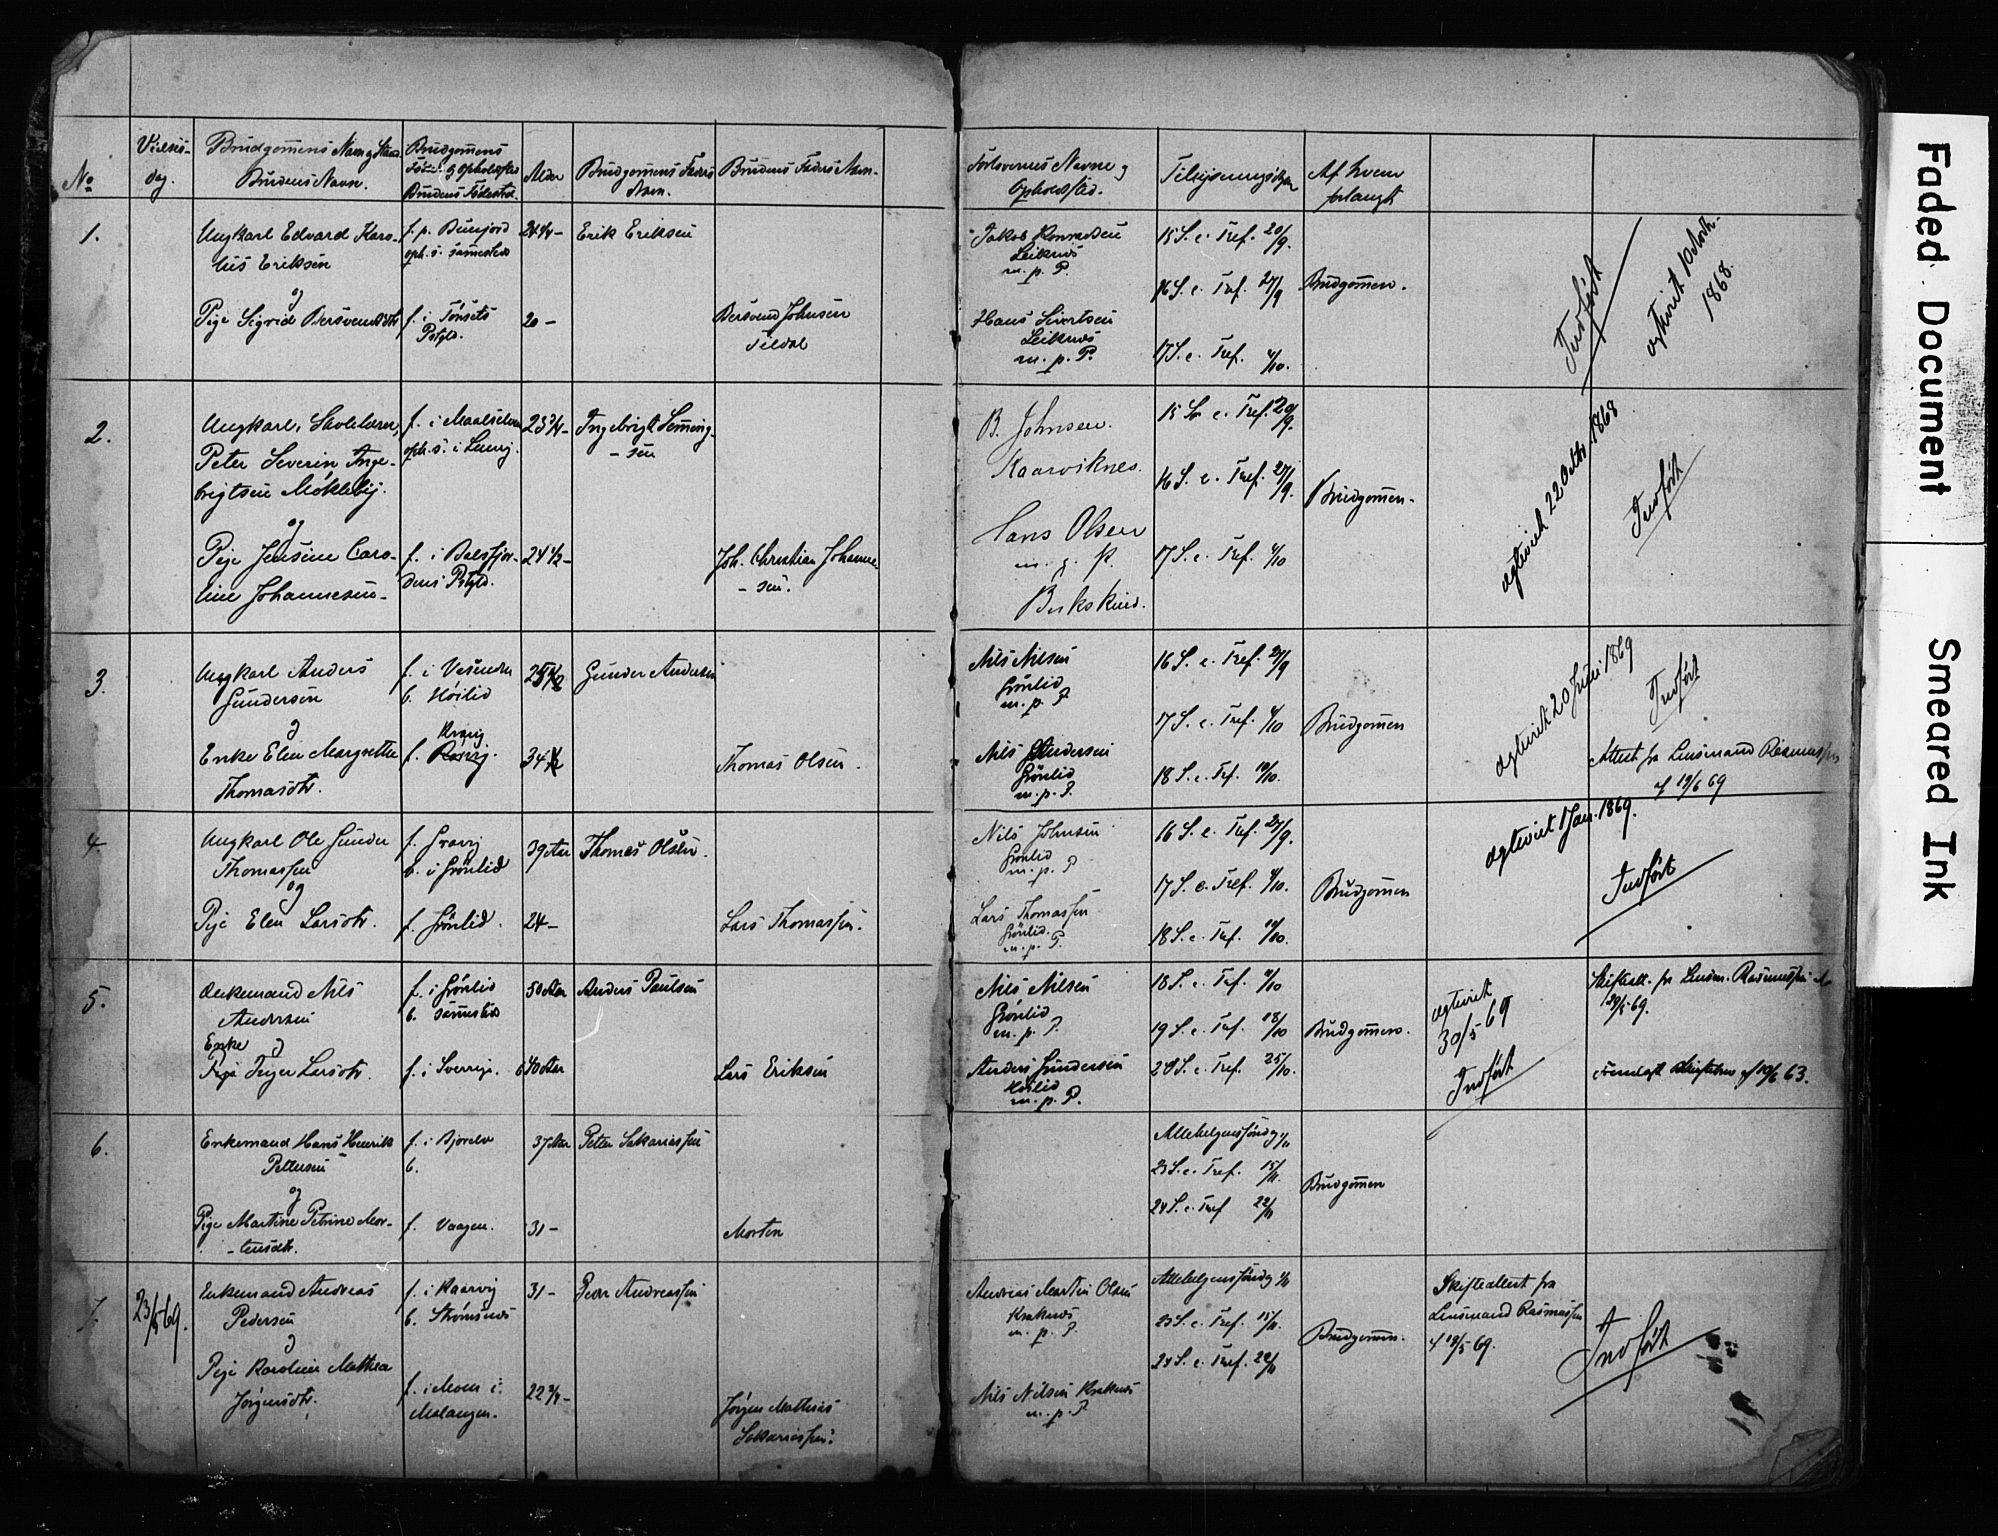 No
Vielses-
dag.
Brudgomens Navn og Stand
Brudens Navn.
Brudgomens
Føde- og Opholdssted
Brudens Fødested
Alder
Brudgomens Faders
Navn.
Brudens Faders Navn.
Forlovernes Navne og
Opholdssted.
Tillysningsdage
Af hvem
forlangt
1.
Ungkarl Edvard Karo-
lius Eriksen
og
Pige Sigrid Bersvendsdtr
opk. s. sammesteds
f. i Tönsets
Prstgld.
24 1/4 -
20 -
Erik Eriksen
Bersvend Johnsen
Tildal
Jakob Konradsen
Leiknes
m. p. P.
Hans Sivertsen
Leiknes
m. p. P.
15 S. e. Tref. 20/9.
16 S. e. Tref. 27/9
17 S. e. Tref. 4/10.
Brudgomen.
Indført
ægteviet 10 Octob.
1868.
2.
Ungkarl, Skolelærer,
Peter Severin Inge-
brigtsen Mökleby.
og
Pige Jensine Caro-
line Johannesen-
f. i Maalselven
oph. s. i Lenvig.
f. i Balsfjor-
dens Prstgld.
25 3/4 -
24 1/2 -
Ingebrigt Semming-
- sen
Joh. Christian Johanne-
- sen.
B. Johnsen.
Kaarviknes.
Hans Olsen
m. p. P.
15 S. e. Tref. 20/9.
16 S. e. Tref. 27/9.
17 S. e. Tref. 4/10
Brudgomen.
ægteviet 22 Octbr. 1868
Indført
3.
Ungkarl Anders
Gundersen
og
Enke Elen Margrethe
Thomasdtr.
b. Höilid
f.
34
Gunder Andersen
Thomas Olsen.
Nils Nilsen
Grönlid
m. p. P
Nils Andersen
Grönlid
m. p. P.
16 S. e. Tref. 27/9
17 S. e. Tref. 4/10
18 S. e. Tref. 11/10.
Brudgomen
ægteviet 20 Juni 1869
Indført
Attest fra Lensmand Rasmussen
af 19/6 69
4.
Ungkarl Ole Gunder
Thomassen
og
Pige Elen Larsdtr.
b. i Grönlid
f. Grönlid.
39 Aar
24 -
Thomas Olsen.
Lars Thomassen.
Nils Johnsen
Grönlid
m. p. P
Lars Thomassen
Grönlid.
m. p. P
16 S. e. Tref. 27/9.
17 S. e. Tref. 4/10.
18 S. e. Tref. 11/10.
Brudgomen
ægteviet 1 Jan. 1869.
Indført
5.
Enkemand Nils
Andersen
Enke og
Pige Inger Larsdtr.
f. i Grönlid
b. sammesteds
f. i Sverrige.
50 Aar
40 Aar
Anders Paulsen
Lars Eriksen
Nils Nilsen
Grönlid
m. p. P.
Anders Gundersen
Höilid
m. p. P.
18 S. e. Tref. 11/10
19 S. e. Tref. 18/10
20 S. e. Tref. 25/10.
Brudgomen.
ægteviet
30/5 69
Indført
Skifteatt. fra Lensm. Rasmussen
29/5 69.
fremlagt Skiftebrev af 10/6 63.
6.
Enkemand Hans Henrik
Pettersen
og
Pige Martine Petrine Mor-
- tensdtr.
f. i Bjorelv
b.
f. Vaagen.
37 Aar
31 -
Peter Sakariassen
Morten
Allehelgenssöndag 1/11
23 S. e. Tref. 15/11.
24 S. e. Tref 22/11
Brudgomen
7.
23/5 69.
Enkemand Andreas
Pedersen
og
Pige Karoline Mathea
Jörgensdtr.
f. i Kaarvig
b. Strömsnes
f. i Moen i
Malangen.
31 -
22 3/4 -
Peder Andreassen
Jörgen Mathias
Sakariassen.
Andreas Martin Olsen
Kraknes
m. p. P
Nils Nilsen Kraknes
m. p. P
Allehelgenssöndag 1/11
23 S. e. Tref. 15/11.
24 S. e. Tref. 22/11
Brudgomen.
Skifteattest fra
Lensmand Rasmussen
af 19/5 69.
Indført
Faded Document
Smeared Ink